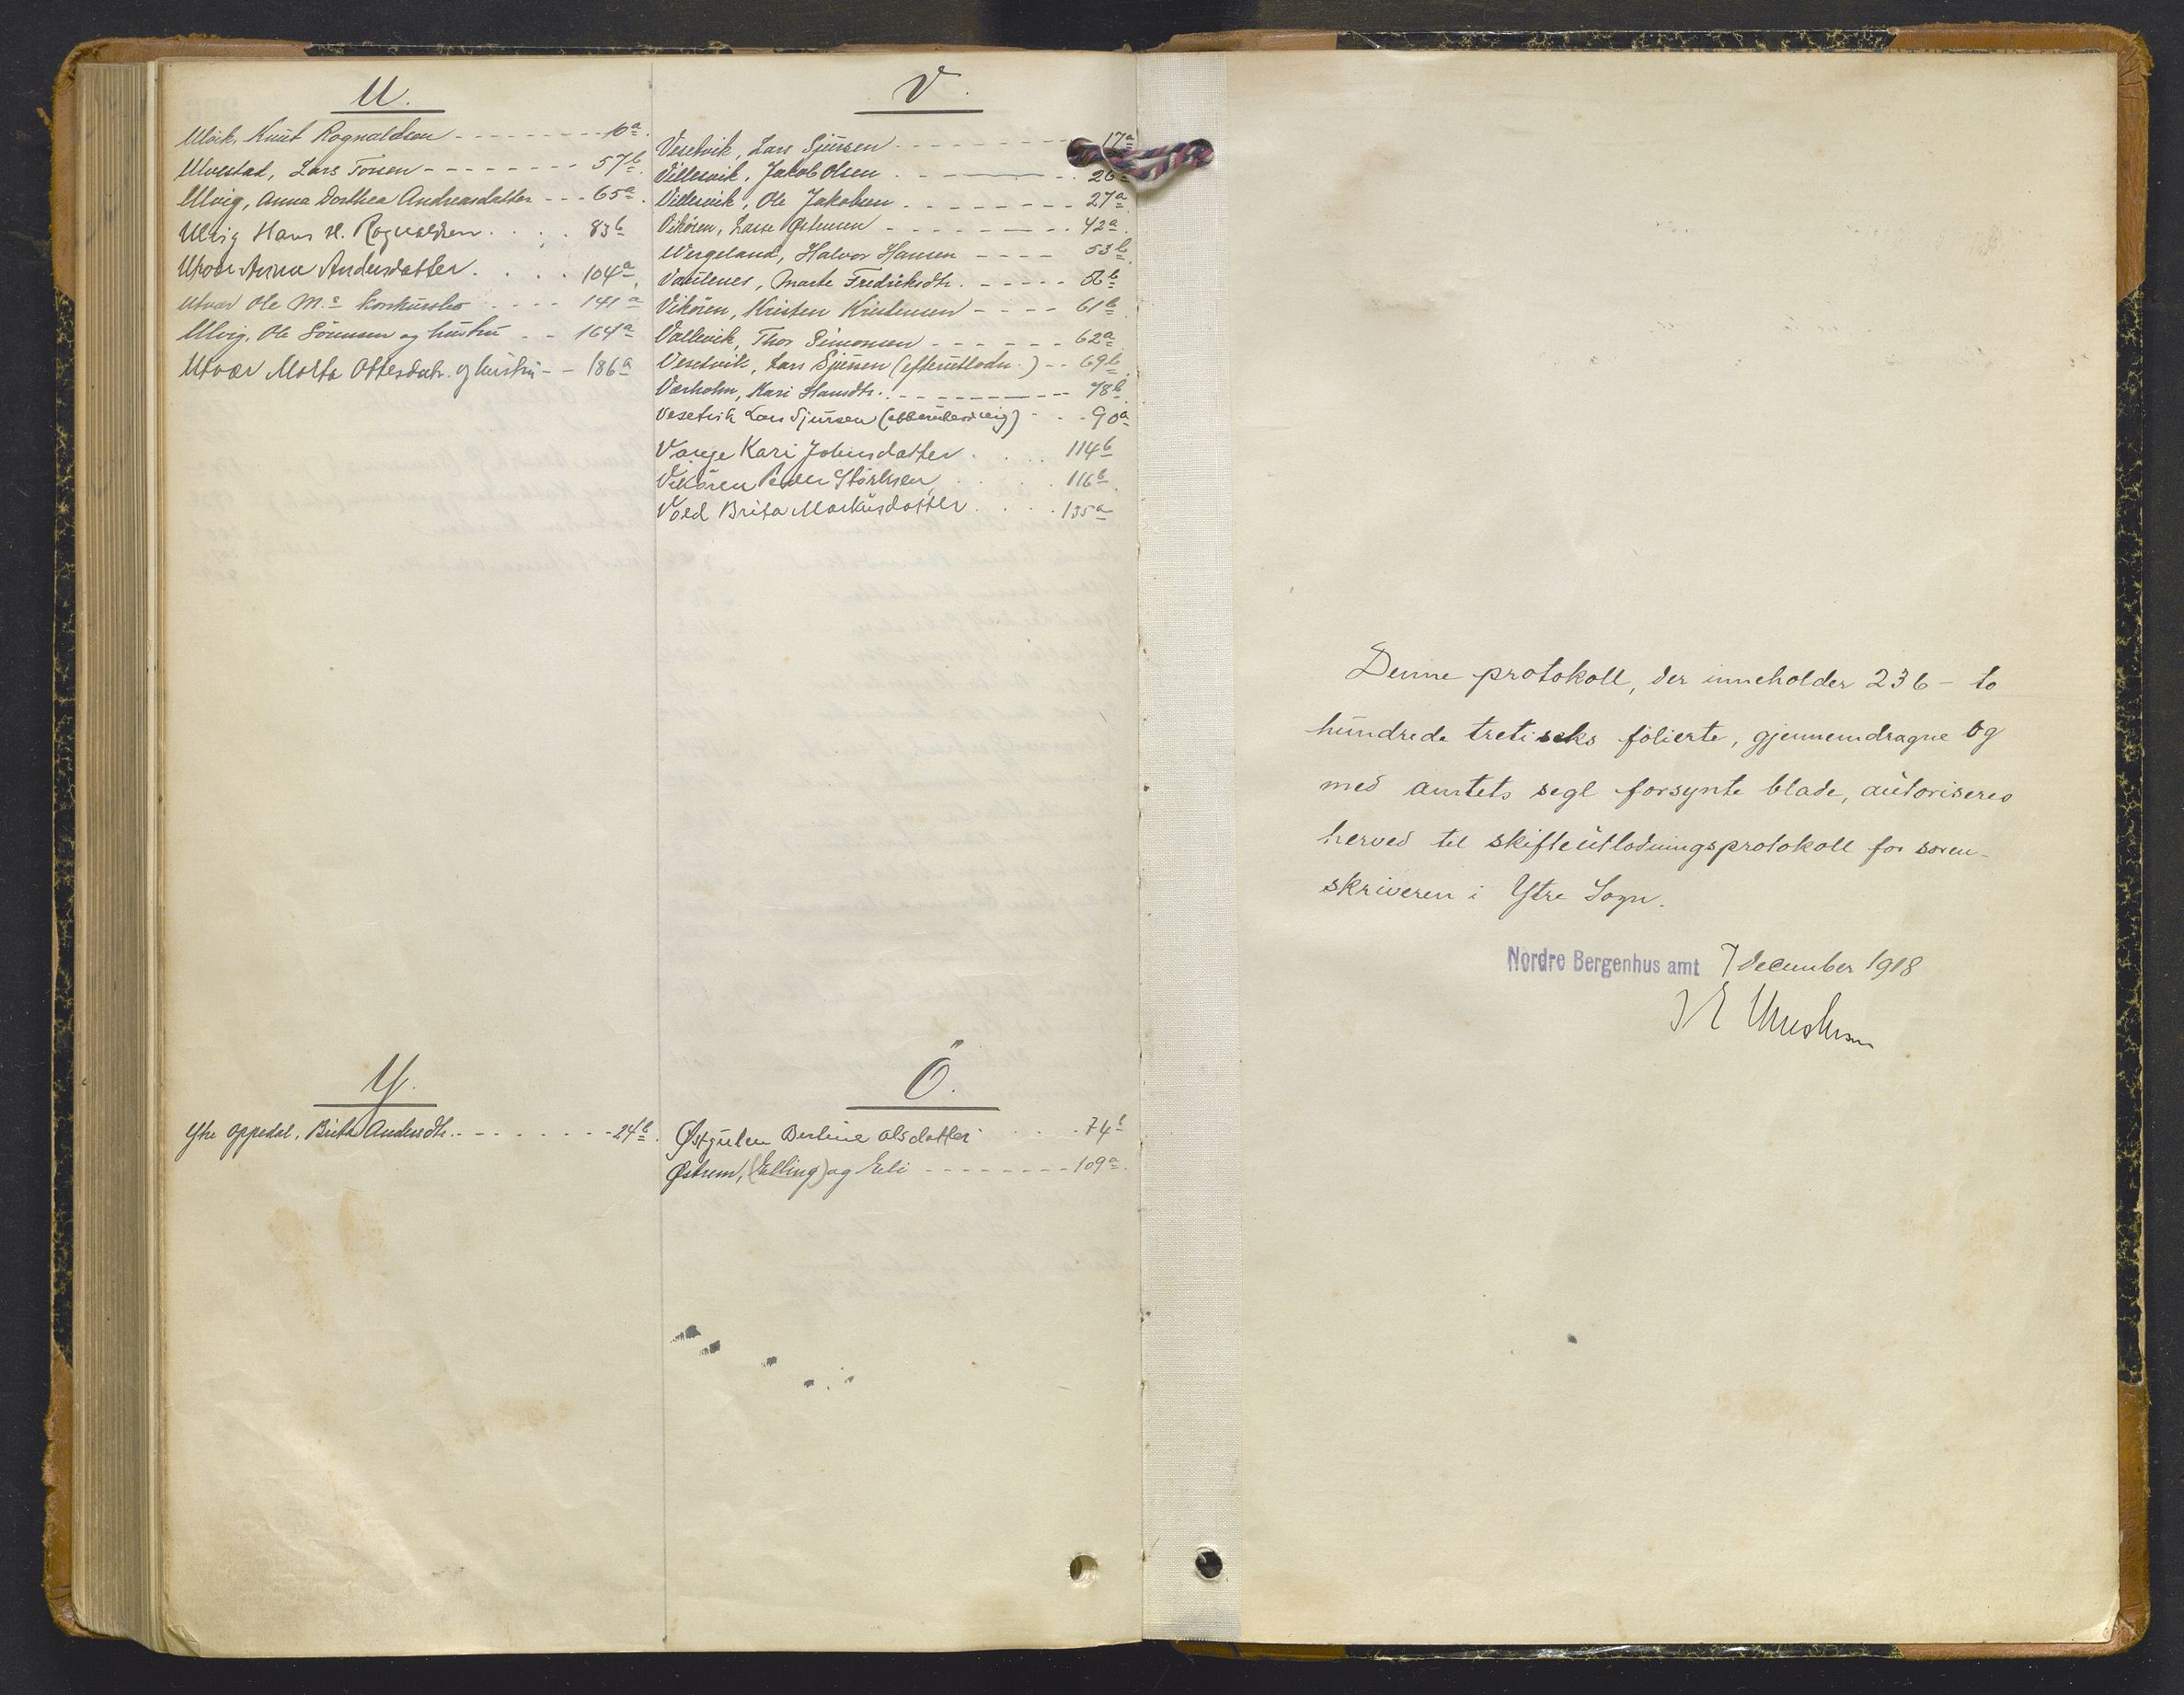 U.
Ulvik, Knut Rognaldsen 10a
Ulvestad, Lars Tonsen 57b
Ulvig, Anna Dorthea Andreasdatter 65a
Ulvig Hans H. Rognaldsen 83b
Utvær Anna Andersdatter 104a
Utvær Ole M.s konkursbo 141a
Ulvig, Ole Sörensen og hustru 164a
Utvær Marta Ottesdatr. og hustru 186a
V.
Vesetvik, Lars Sjursen 17a
Villesvik, Jakob Olsen 26a
Villesvik, Ole Jakobsen 27a
Vikören, Lasse Østensen 42a
Wergeland, Halvor Hansen 53b
Marte Fredriksdtr. 56b
Vikören, Kristen Kristensen 61b
Vallevik, Thor Simonsen 62a
Vesetvik, Lars Sjursen (efterutlodn.) 69b
Værholm, Kari Hansdtr. 78b
Vesetvik Lars Sjursen 90a
Vange Kari Johnsdatter 114b
Vikören Peder 116b
Vold Brita Markusdatter 135a
Y.
Ytre Oppedal, Brita Andersdtr. 24b
Ö.
Østgulen Berline Olsdatter 74b
Østrem, (Elling) og Eli 109a
Denne protokoll, der inneholder 236 - to
hundrede tretiseks folierte, gjennemdragne og
med amtets segl forsynte blade, autoriseres
herved til skifteutlodningsprotokoll for soren-
skriveren i Ytre Sogn.
Nordre Bergenhus amt 7 december 1918